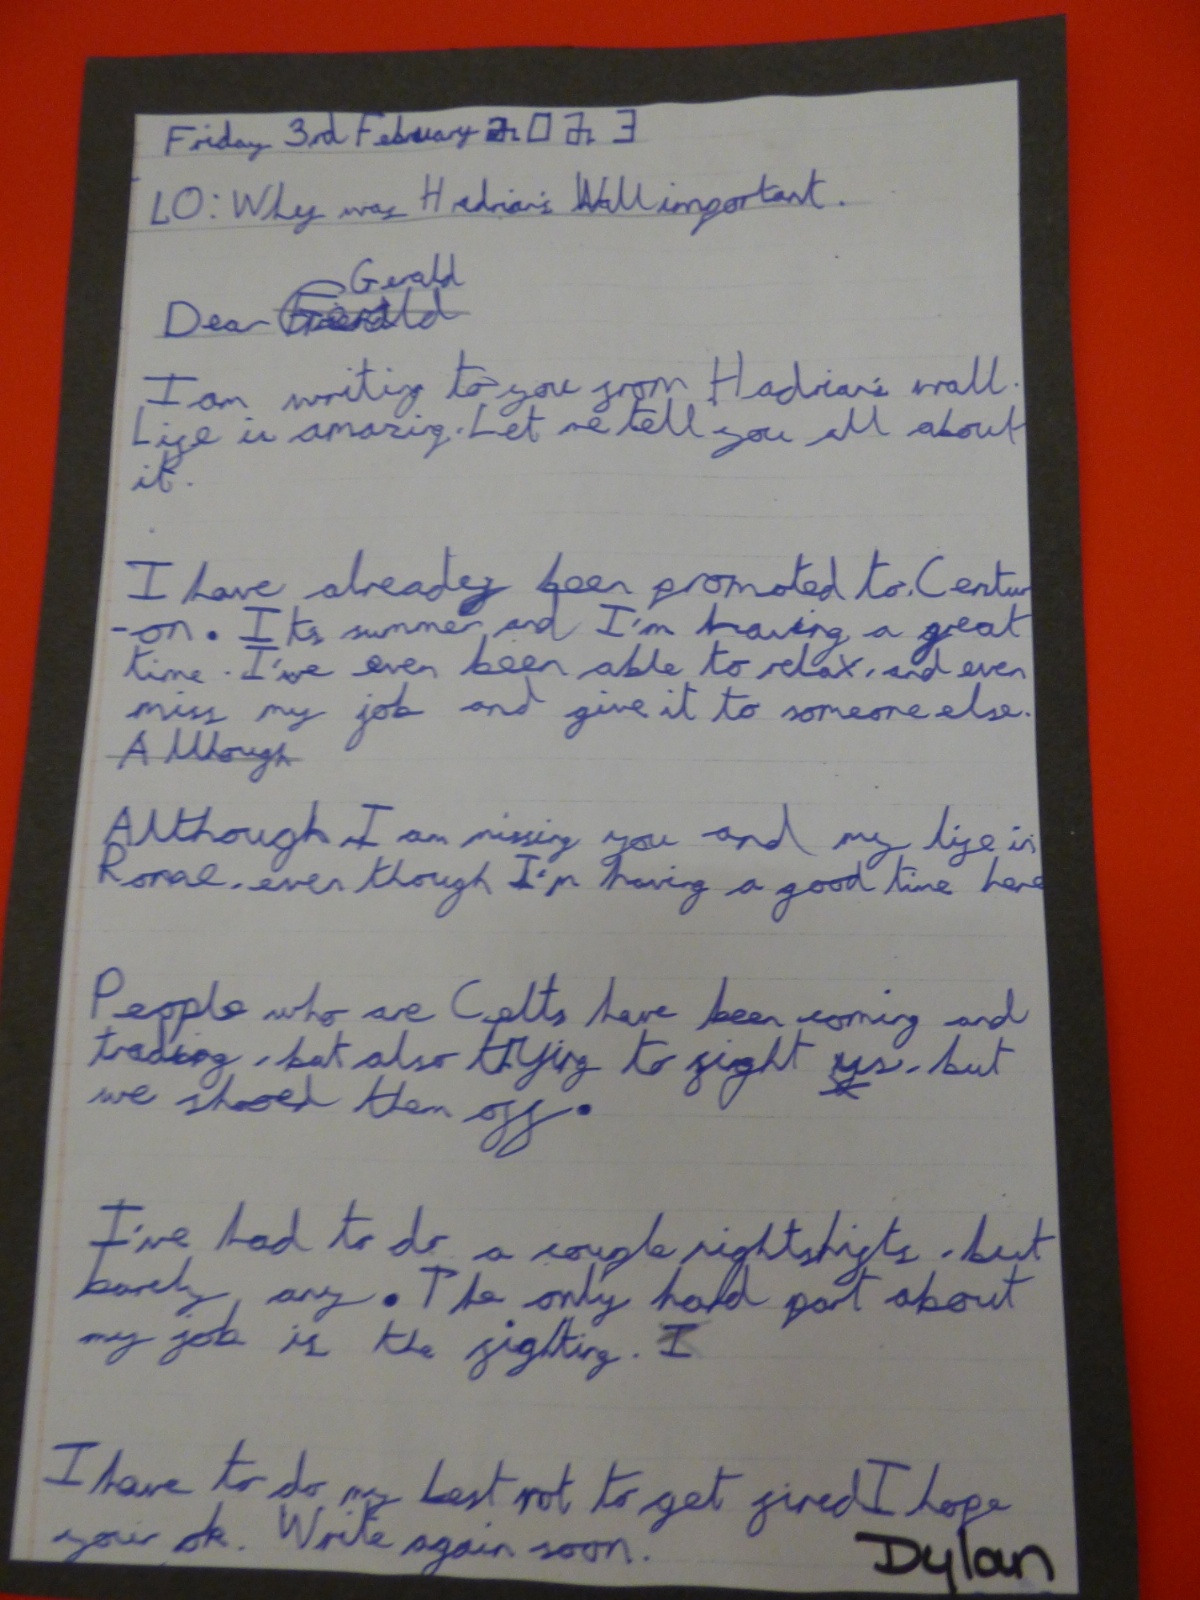 Friday 3rd February 2023
LO: Why was Hadrian's Wall important.
Gerald
Dear
I am writing to you from Hadrian's wall.
Life is amazing. Let me tell you all about
it.
I have already been promoted to. Centur
-on. Its summer and I'm having a great
time. I've even been able to relax, and even
miss my job and give it to someone else.
Although
Although I am missing you and my life in
Rome, even though I'm having a good time here
People who are Celts have been coming and
trading, but also trying to fight us, but
we shooed them off.
I've had to do a couple nightshifts, but
barely any. The only hard part about
my job is the fighting. I
I have to do my best not to get fired I hope
your ok. Write again soon.
Dylan